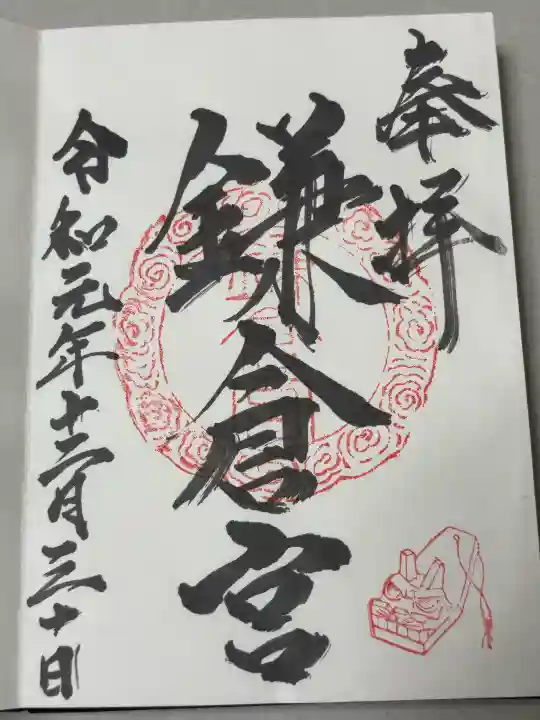 奉拝
鎌倉宮
令和元年十二月三十日